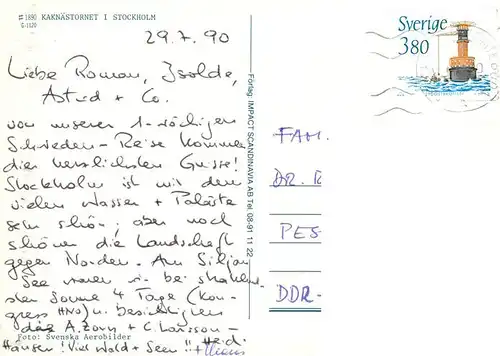 # 1890 KAKNÄSTORNET I STOCKHOLM
S-1120
Sverige
380
29.7.90
Liebe Roman, Isolde,
Astrid + Co.
von unserer 1-wöchigen
Schweden-Reise kommen
die herzlichsten Grüsse!
Stockholm ist mit dem
vielen Wasser + Paläste
sehr schön, aber noch
schöner die Landschaft
gegen Norden. Am Siljan-
See waren wir bei strahlend-
ster Sonne 4 Tage (Kon-
gress HNO) u. besichtigten
das A. Zorn + C. Larsson-
Häuser! Viel Wald + Seen!! Heidi
+ Klaus
Foto: Svenska Aerobilder
Förlag IMPACT SCANDINAVIA AB Tel 08-91 11 22
FAM.
DR.
PES
DDR-